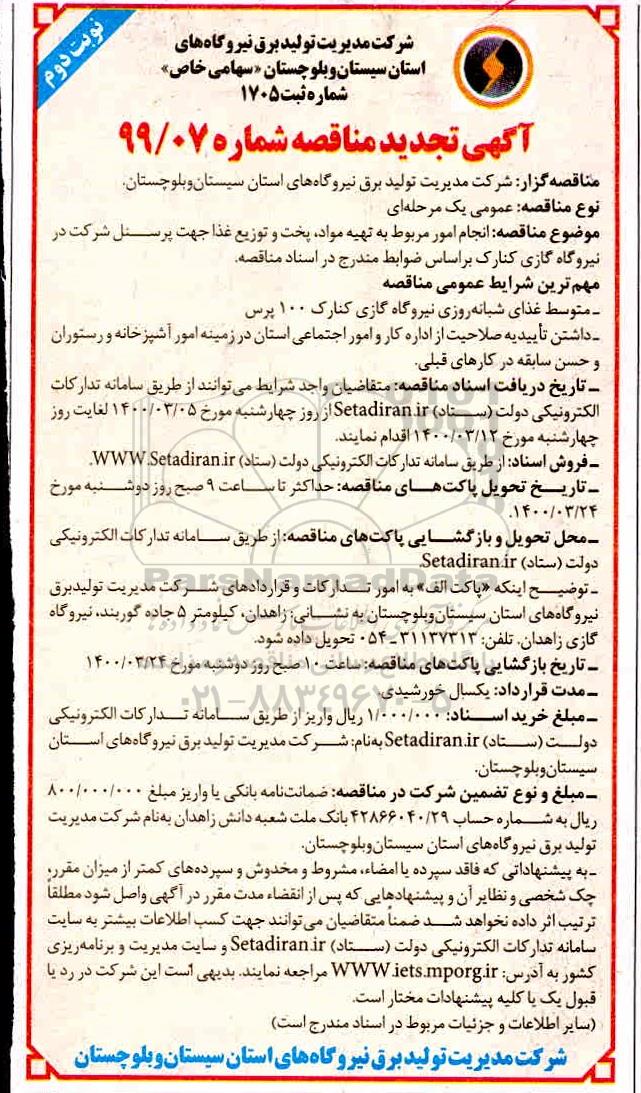 نوبت دوم
شرکت مدیریت تولید برق نیروگاه‌های
استان سیستان و بلوچستان «سهامی خاص»
شماره ثبت ۱۷۰۵
آگهی تجدید مناقصه شماره ۹۹/۰۷
مناقصه‌گزار: شرکت مدیریت تولید برق نیروگاه‌های استان سیستان‌وبلوچستان.
نوع مناقصه: عمومی یک مرحله‌ای
موضوع مناقصه: انجام امور مربوط به تهیه مواد، پخت و توزیع غذا جهت پرسنل شرکت در
نیروگاه گازی کنارک براساس ضوابط مندرج در اسناد مناقصه.
مهم‌ترین شرایط عمومی مناقصه
ـ متوسط غذای شبانه‌روزی نیروگاه گازی کنارک ۱۰۰ پرس
ـ داشتن تأییدیه صلاحیت از اداره کار و امور اجتماعی استان در زمینه امور آشپزخانه و رستوران
و حسن سابقه در کارهای قبلی.
ـ تاریخ دریافت اسناد مناقصه: متقاضیان واجد شرایط می‌توانند از طریق سامانه تدارکات
الکترونیکی دولت (ستاد) Setadiran.ir از روز چهارشنبه مورخ ۱۴۰۰/۰۳/۰۵ لغایت روز
چهارشنبه مورخ ۱۴۰۰/۰۳/۱۲ اقدام نمایند.
ـ فروش اسناد: از طریق سامانه تدارکات الکترونیکی دولت (ستاد) WWW.Setadiran.ir.
ـ تاریخ تحویل پاکت‌های مناقصه: حداکثر تا ساعت ۹ صبح روز دوشنبه مورخ
۱۴۰۰/۰۳/۲۴.
ـ محل تحویل و بازگشایی پاکت‌های مناقصه: از طریق سامانه تدارکات الکترونیکی
دولت (ستاد) Setadiran.ir.
ـ توضیح اینکه «پاکت الف» به امور تدارکات و قراردادهای شرکت مدیریت تولیدبرق
نیروگاه‌های استان سیستان‌وبلوچستان به نشانی: زاهدان، کیلومتر ۵ جاده گوربند، نیروگاه
گازی زاهدان. تلفن: ۳۱۱۳۷۳۱۳-۰۵۴ تحویل داده شود.
ـ تاریخ بازگشایی پاکت‌های مناقصه: ساعت ۱۰ صبح روز دوشنبه مورخ ۱۴۰۰/۰۳/۲۴
ـ مدت قرارداد: یکسال خورشیدی.
ـ مبلغ خرید اسناد: ۱/۰۰۰/۰۰۰ ریال واریز از طریق سامانه تدارکات الکترونیکی
دولت (ستاد) Setadiran.ir به‌نام: شرکت مدیریت تولید برق نیروگاه‌های استان
سیستان‌وبلوچستان.
ـ مبلغ و نوع تضمین شرکت در مناقصه: ضمانت‌نامه بانکی یا واریز مبلغ ۸۰۰/۰۰۰/۰۰۰
ریال به شماره حساب ۴۲۸۶۶۰۴۰/۲۹ بانک ملت شعبه دانش زاهدان به‌نام شرکت مدیریت
تولید برق نیروگاه‌های استان سیستان‌وبلوچستان.
ـ به پیشنهاداتی که فاقد سپرده یا امضاء، مشروط و مخدوش و سپرده‌های کمتر از میزان مقرر،
چک شخصی و نظایر آن و پیشنهادهایی که پس از انقضاء مدت مقرر در آگهی واصل شود مطلقاً
ترتیب اثر داده نخواهد شد ضمناً متقاضیان می‌توانند جهت کسب اطلاعات بیشتر به سایت
سامانه تدارکات الکترونیکی دولت (ستاد) Setadiran.ir و سایت مدیریت و برنامه‌ریزی
کشور به آدرس: WWW.iets.mporg.ir مراجعه نمایند. بدیهی است این شرکت در رد یا
قبول یک یا کلیه پیشنهادات مختار است.
(سایر اطلاعات و جزئیات مربوط در اسناد مندرج است)
شرکت مدیریت تولید برق نیروگاه‌های استان سیستان و بلوچستان
ParsNamadData
۰۲۱-۸۸۳۴۹۶۷۰-۵